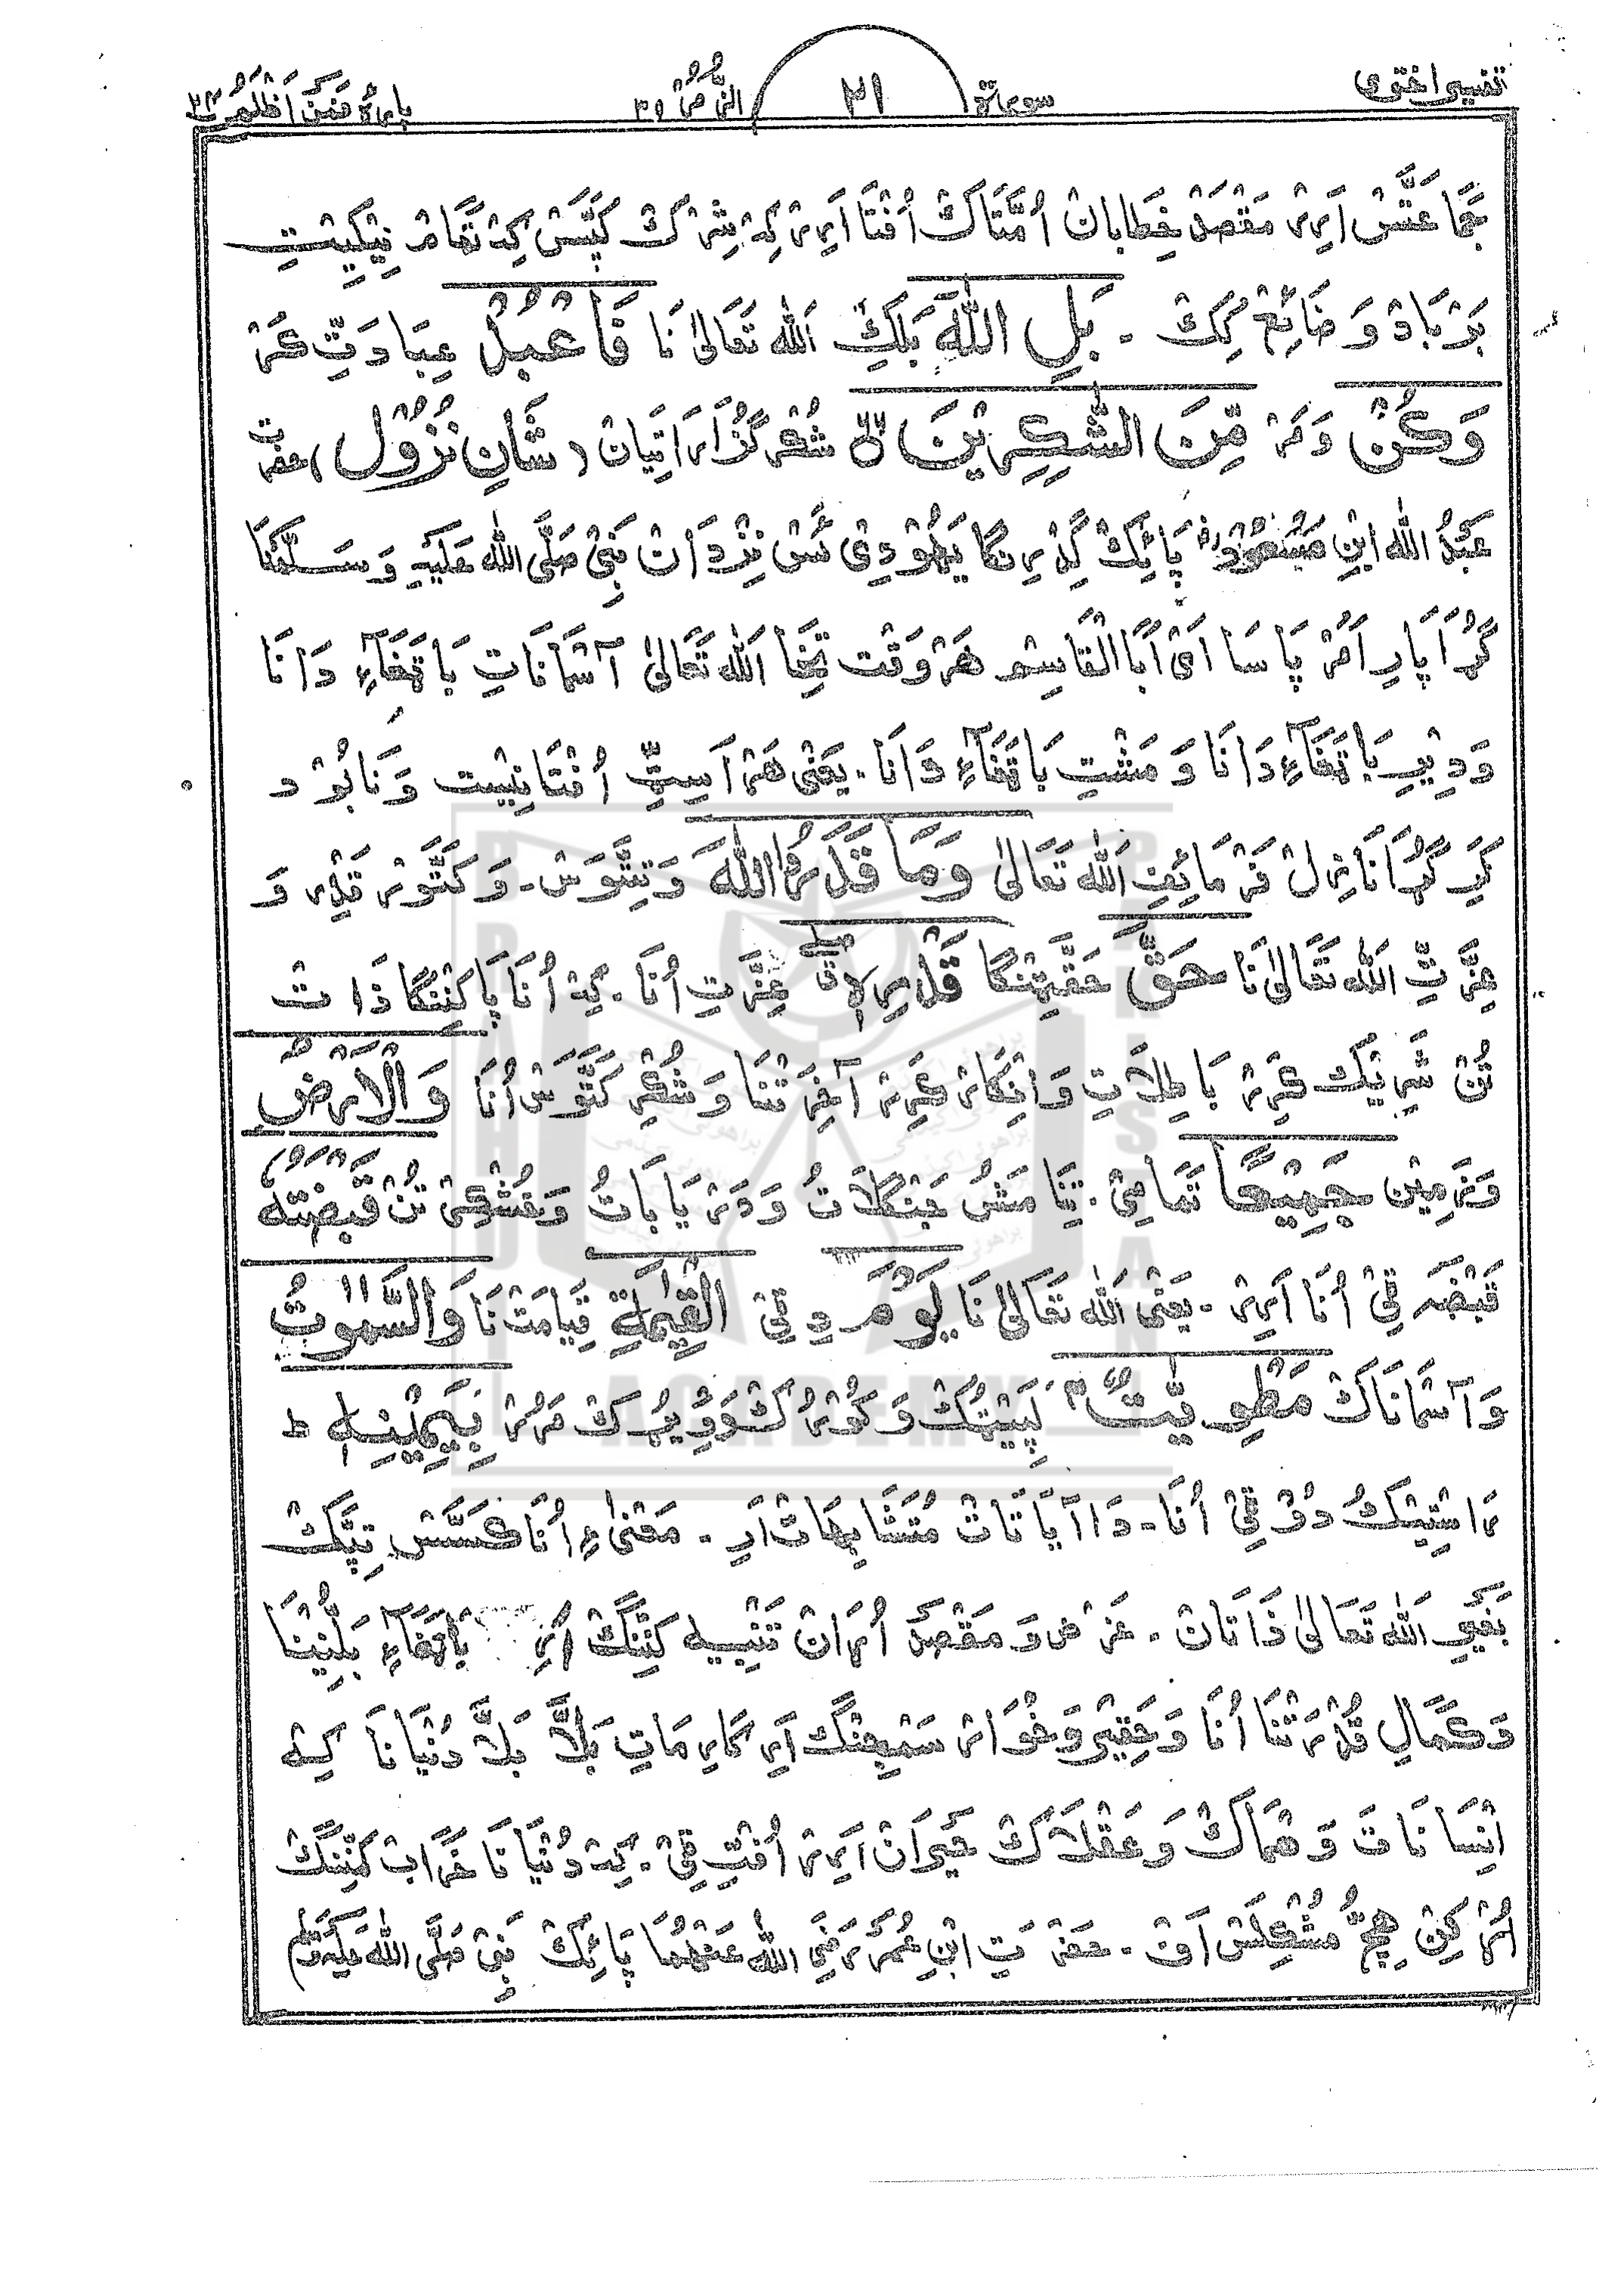 تفسیر اختری سورۃ ۲۱ الزُّمَرُ ۳۹ پارہ فَمَنْ اَظْلَمُ ۲۴
جَمَاعَتَسْ اَرِیْر مَقْصَدْ خِطَابَانْ اُمَّتَاکْ اُفْتَا اَرِیْر کِہْ شِرْکْ کَیَّسْ کِہْ تَمَامْ نِیْکِیْتِ
بَرْبَادْ وَ ضَائِعْ کِکْ ۔ بَلِ اللّٰهَ بَلَکِہْ اَللّٰه تَعَالیٰ نَا فَاعْبُدْ عِبَادَتِّ کَرْ
وَكُنْ وَمَرْ مِّنَ الشّٰكِرِيْنَ شُکْرگُزَارَاتِیَانْ (شَانِ نُزُوْل) حضرت
عَبْدُ اللّٰه ابْنِ مَسْعُوْدْ پَائِکْ گِدْرِنْگَا یَهُوْدِیْ ئَسْ نِزْدَانْ نَبِیْ صَلَّی اللّٰه عَلَیْهِ وَسَلَّمْنَا
گُڑَا پَارِ اَمْرْ پَاسَا اَیْ اَبَا الْقَاسِمْ هَرْوَقْت تِخَا اَللّٰه تَعَالیٰ آسْمَانَاتِ بَا تِهْفَاءِ دَانَا
وَ دِیْرِ بَا تِهْفَاءِ دَانَا وَ مَشْتِ بَا تِهْفَاءِ دَانَا ۔ یَعْنِیْ هَرْ اَسِٹِّ اُفْتَا نِیْسْت وَ نَابُوْد
کَرِ گُڑَا نَازِلْ فَرْمَائِفِ اَللّٰه تَعَالیٰ وَمَا قَدَرُوا اللّٰهَ وَ تِتَّوَسْ ۔ وَ کَتَّوْر قَدْر وَ
عِزَّتِّ اَللّٰه تَعَالیٰ نَا حَقَّ حَقَّهِنْگَا قَدْرِهٖ عِزَّتِ اُنَا ۔ کِہْ اُنَا پَاکَنِنْگَا ذَاتْ
تُنْ شَرِیْک کَرِرْ بَاطِلَاتِ وَ اِنْکَار کَرِرْ آخِرَتْنَا وَ شُکْر کَتَّوَسْ اُنَا وَالْاَرْضُ
وَ زَمِیْن جَمِيْعًا تَمَامِیْ ۔ تِنَا مَشُ جَنْگَلَاتُ وَ دَرْیَابَاتُ وَ خُشْکِیْ تُنْ قَبْضَتُهٗ
قَبْضَہ ٹِیْ اُنَا اَرِیْر ۔ یَعْنِیْ اَللّٰه تَعَالیٰ نَا يَوْمَ دِ ٹِیْ الْقِيٰمَةِ قِیَامَتْنَا وَالسَّمٰوٰتُ
وَ آسْمَانَاکْ مَطْوِيّٰتٌ لِپَیْٹُکْ وَ کُوْرُکْ وَ وِیْرُکْ مَرُرْ بِيَمِيْنِهٖ ط
رَاسْتِیْکُ دُوْ ٹِیْ اُنَا ۔ دَا آیَاتَاتْ مُتَشَابِهَاتْ اَرِ ۔ مَعْنیٰ ءِ اُنَا کَسَّسْ تِپَّکْ
بَغَیْرِ اَللّٰه تَعَالیٰ ذَاتَانْ ۔ غَرَض وَ مَقْصَدْ اُرَانْ تَنْبِیه کَنِنْگ اَرِ بَا تِهْفَاءِ بَلِنِیْنَا
وَ کَمَالِ قُدْرَتْنَا اُنَا وَ حَقِیْر وَ خُوَار سَمْجِهْنْگ اَرِ کَارِمَاتِ بَلَّا بَلَّا دُنْیَانَا کِہ
اِنْسَانَاتَ وَ فَهْمَاکْ وَ عَقْلَاکْ حَیْرَانْ اَرِیْر اُفْتِ ٹِیْ ۔ کِہْ دُنْیَانَا خَرَابْ کَنِنْگ
اُرْکِنْ هِیْچُّ مُشْکِلَسْ اَفْ ۔ حَضْرَتِ ابْنِ عُمَرْ رَضِیَ اللّٰهُ عَنْهُمَا پَائِکْ نَبِیْ صَلَّی اللّٰه عَلَیْهِ وَسَلَّم